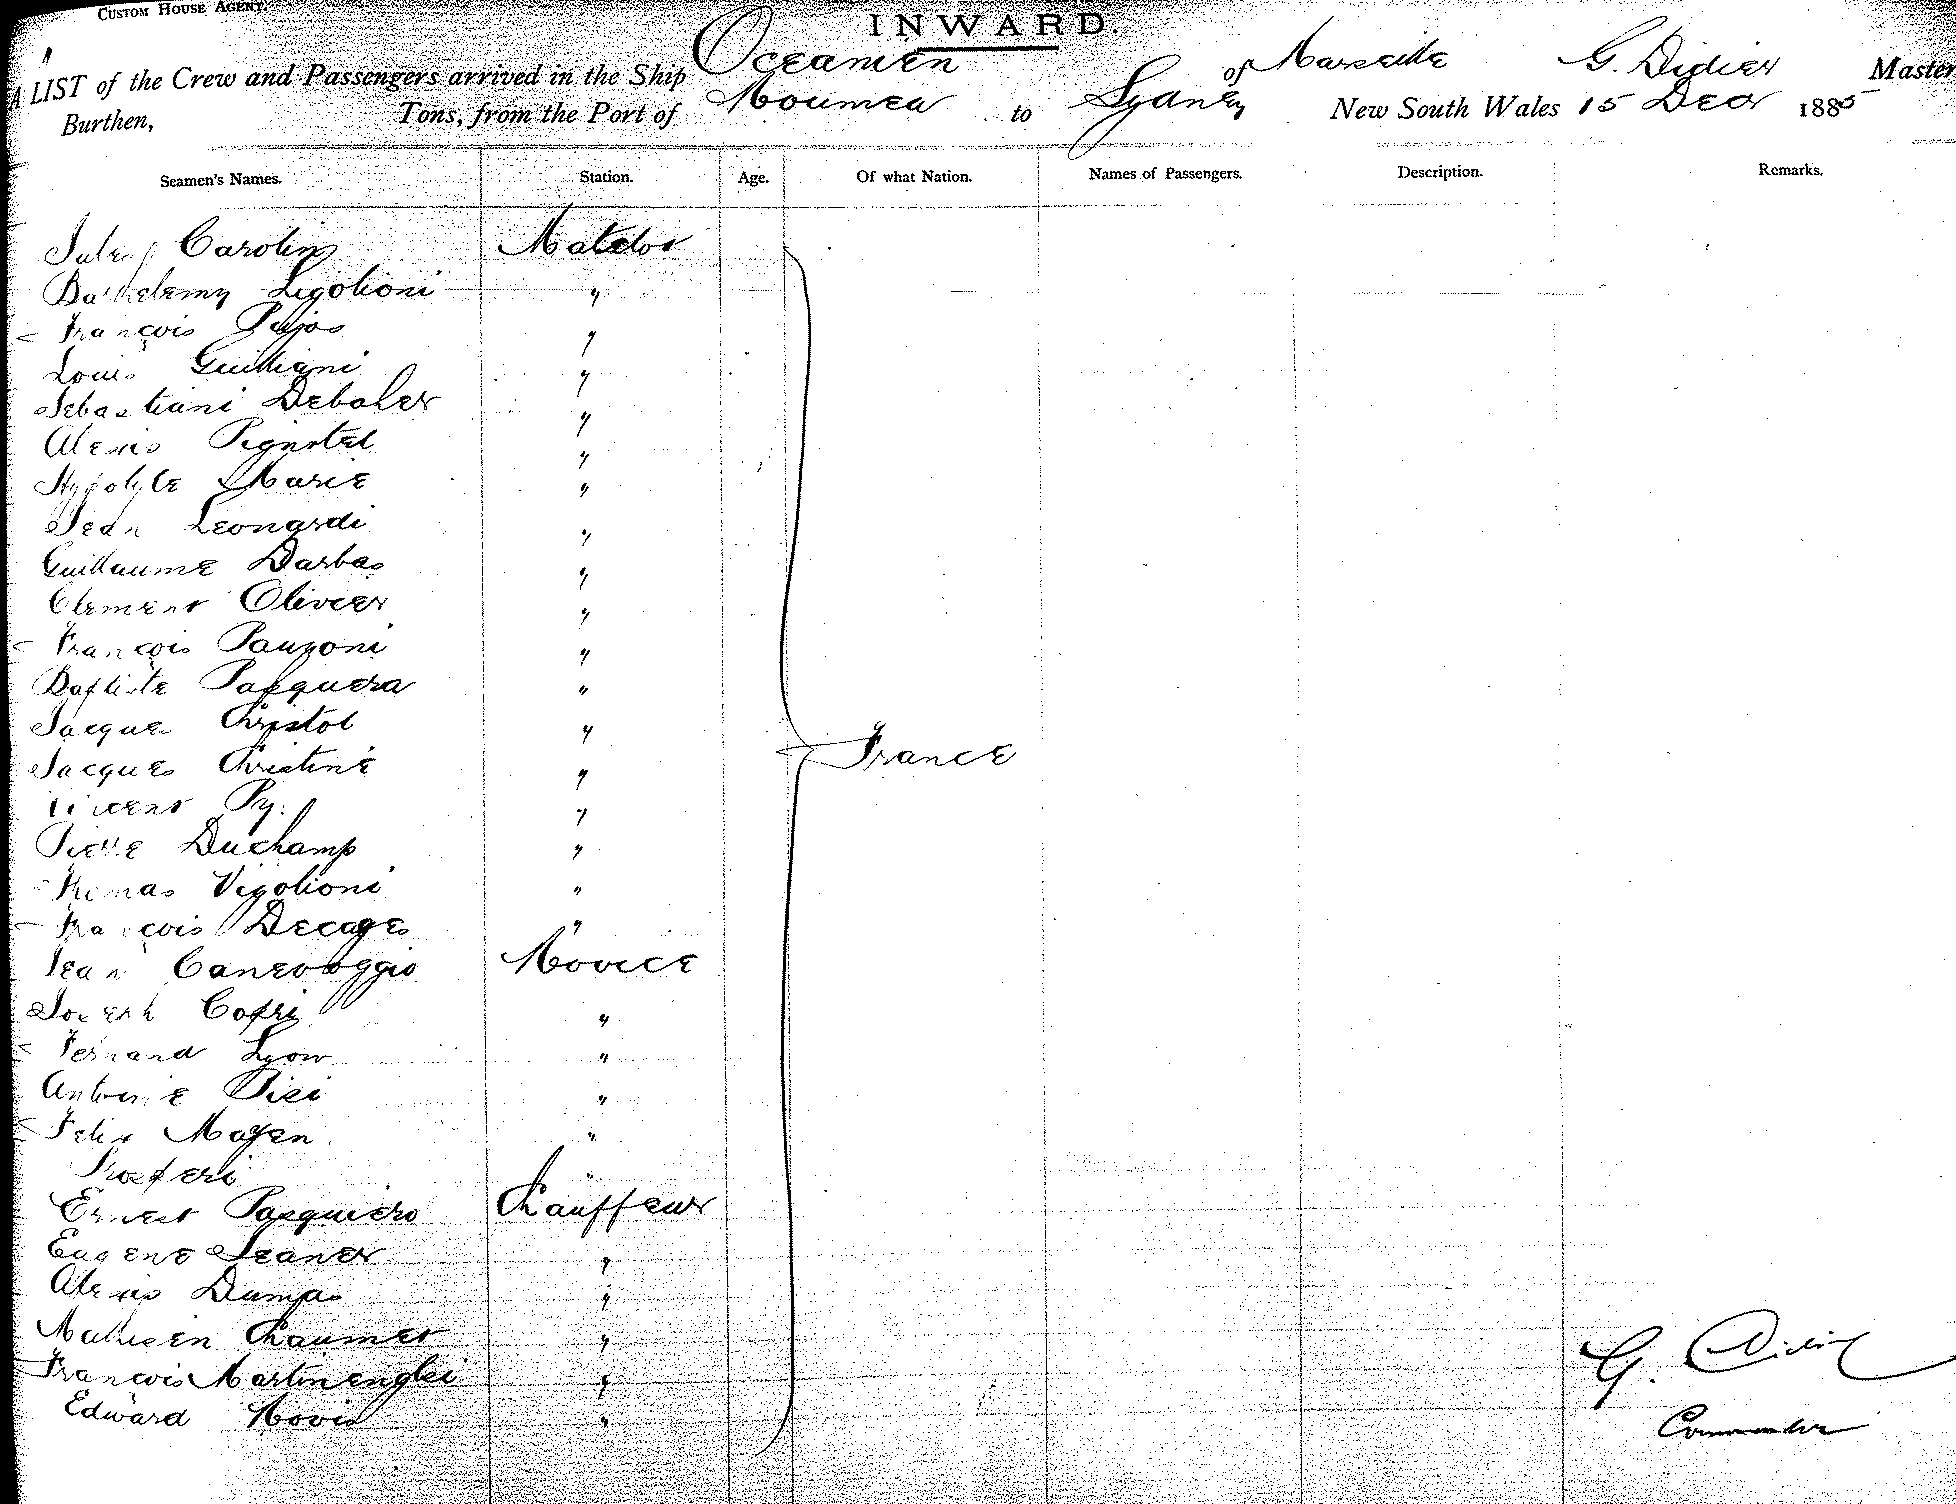 CUSTOM HOUSE AGENT.
INWARD.
A LIST of the Crew and Passengers arrived in the Ship Oceanien of Marseille G. Didier Master
Burthen, Tons, from the Port of Noumea to Sydney New South Wales 15 Decr 1885
Seamen's Names. Station. Age. Of what Nation. Names of Passengers. Description. Remarks.
Jules Carolin Matelot
Barthelemy Ligolioni "
Francois Pujos "
Louis Guilliani "
Sebastiani "
Alexis Pignatel "
Hypolyte Marie "
Jean Leonardi "
Guillaume Darbas "
Clement Olivier "
Francois Pauzoni "
Baptiste Pasquera "
Jacques Christol "
Jacques Christine " France
Vincent Py. "
Pierre Duchamp "
Thomas Vigolioni "
Francois Decages "
Jean Canevaggio Novice
Joseph "
Fernand Lyon "
Antoine Pisi "
Felix Mayen "
Prosperi "
Ernest Pasquiero Chauffeur
Eugene "
Alexis Dumas "
Chaumet "
Francois Martinenghi "
Edward Novis "
G. Didier
Commander